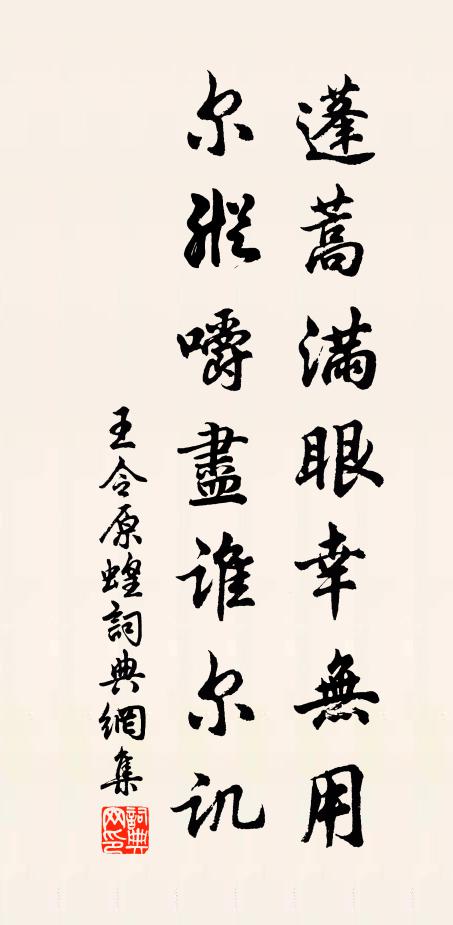 蓬蒿滿眼幸無用
尔縱嚼盡誰尔讥
王令原蝗詞典網集
詞典网印